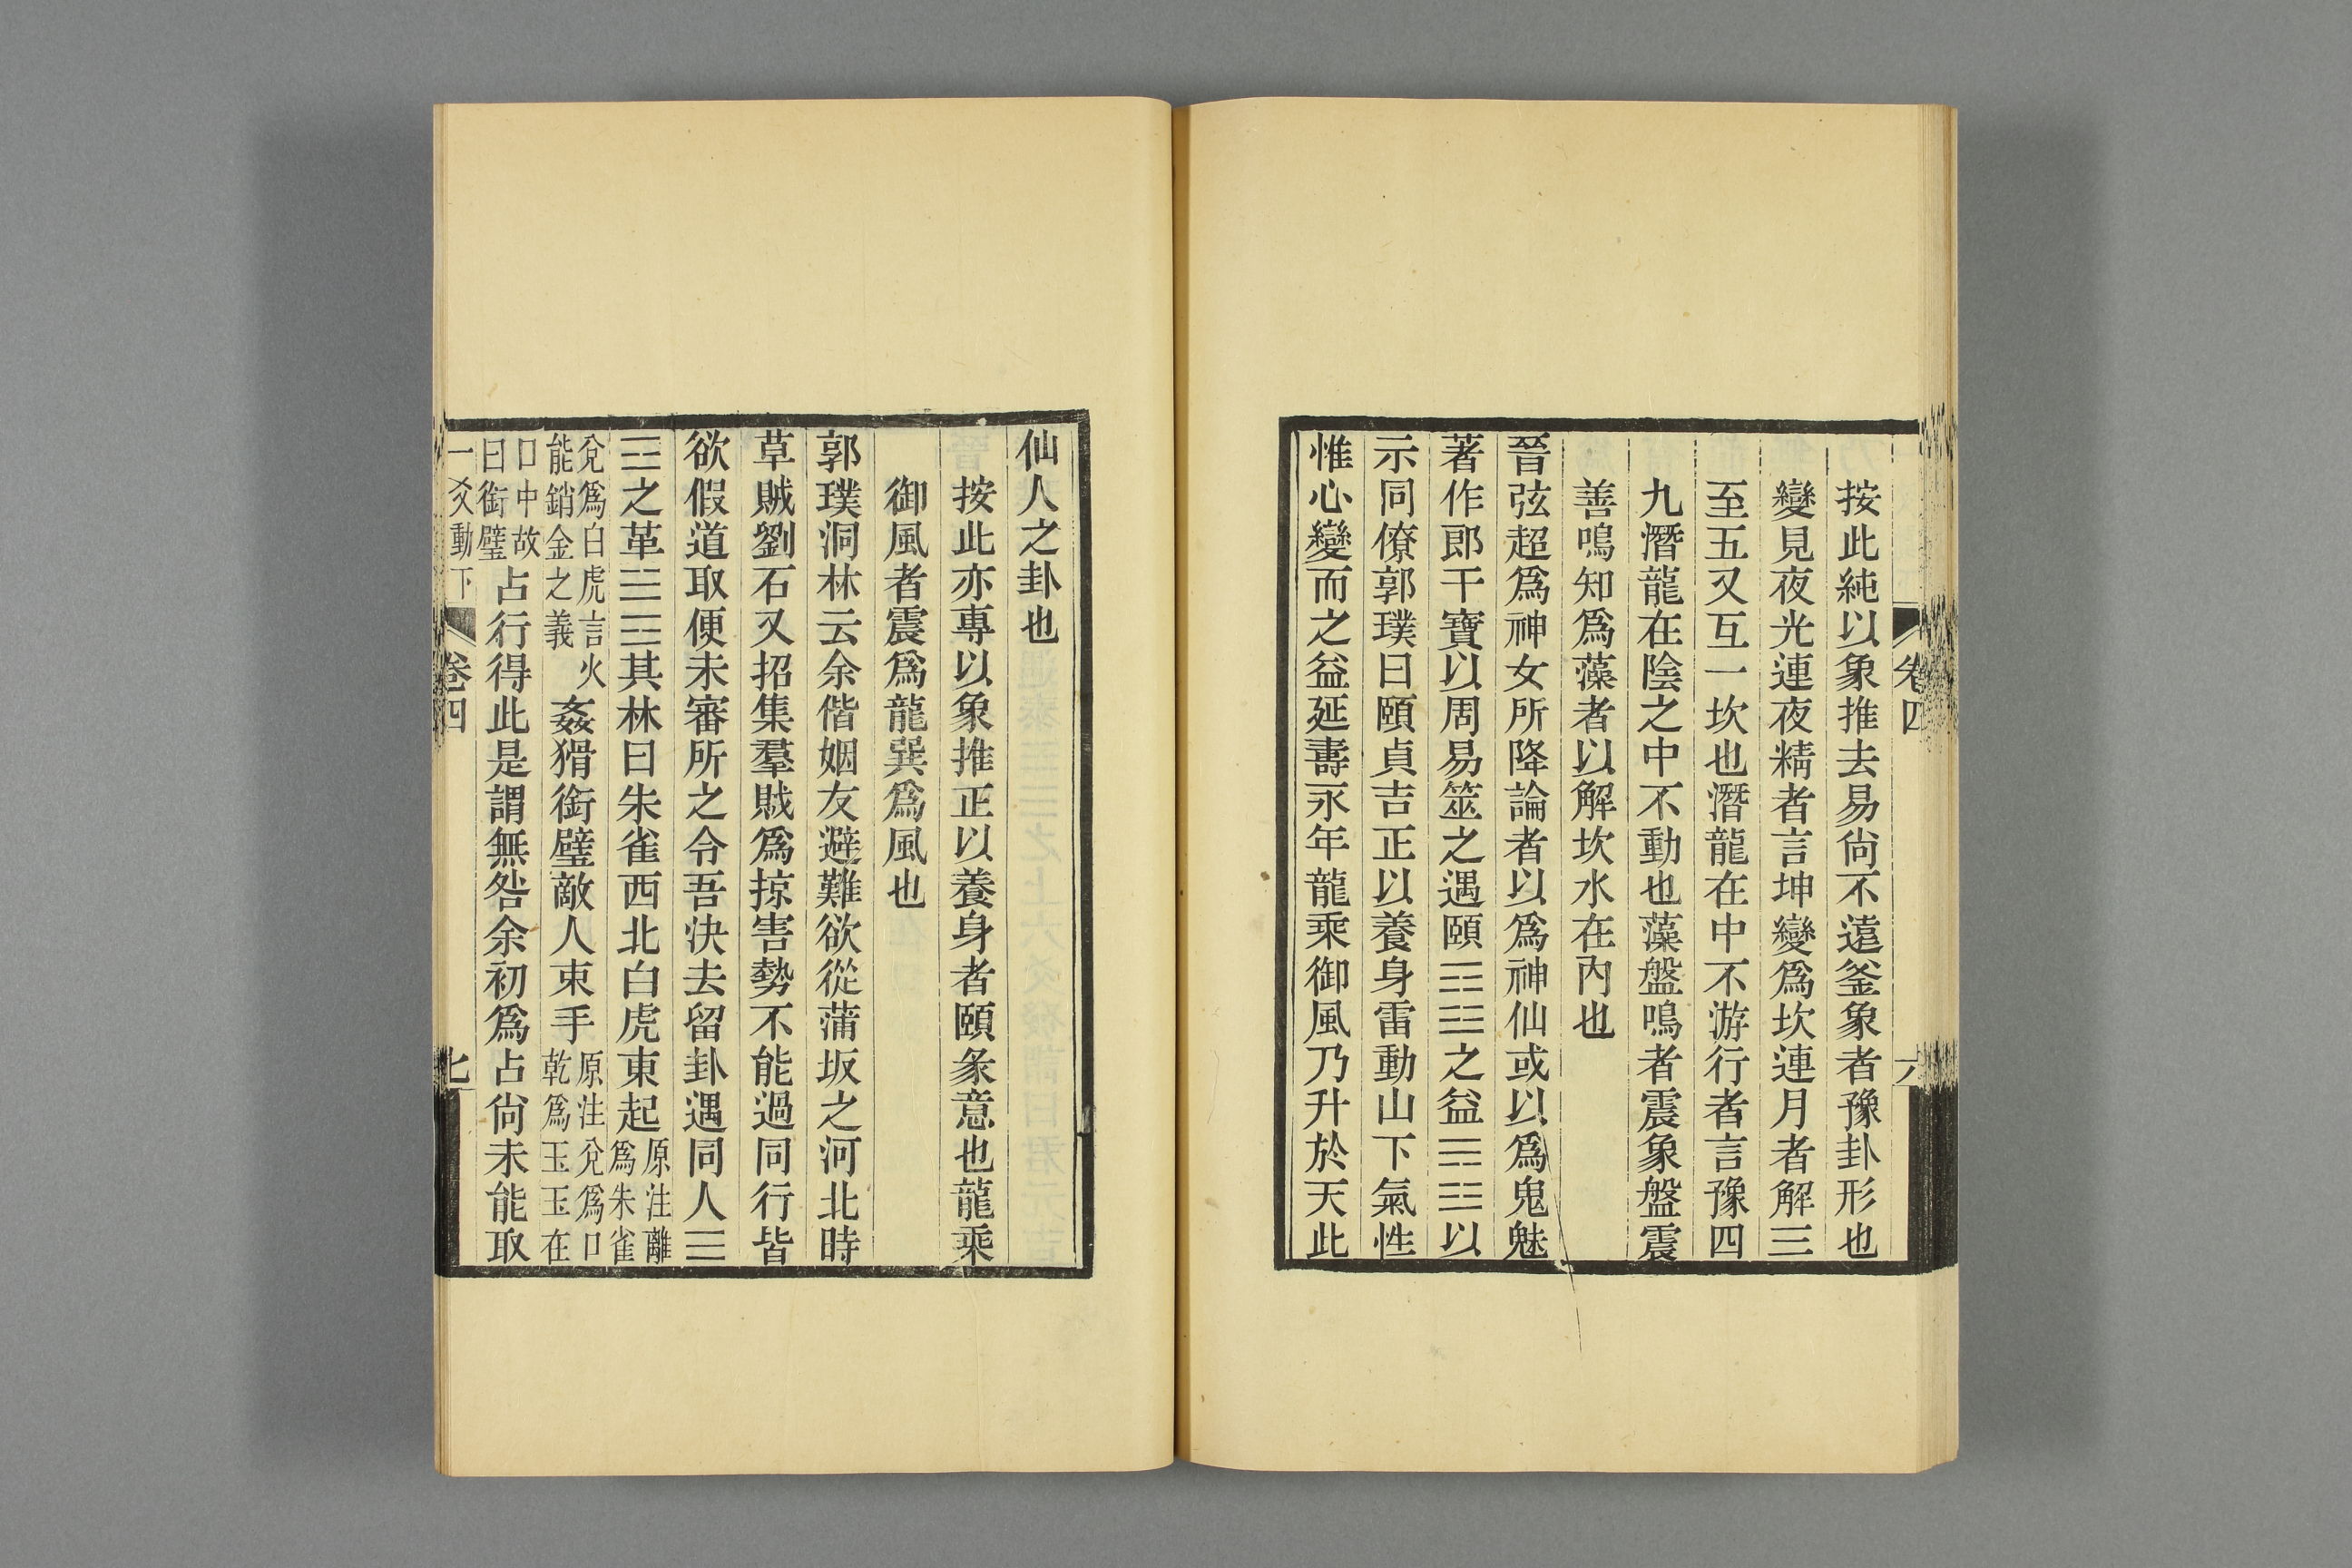 卷四　六
按此純以象推去易尙不遠釜象者豫卦形也
變見夜光連夜精者言坤變爲坎連月者解三
至五又互一坎也潛龍在中不游行者言豫四
九潛龍在陰之中不動也藻盤鳴者震象盤震
善鳴知爲藻者以解坎水在內也
晉弦超爲神女所降論者以爲神仙或以爲鬼魅
著作郎干寶以周易筮之遇頤☶☳之益☴☳以
示同僚郭璞曰頤貞吉正以養身雷動山下氣性
惟心變而之益延壽永年龍乘御風乃升於天此
仙人之卦也
按此亦專以象推正以養身者頤彖意也龍乘
御風者震爲龍巽爲風也
郭璞洞林云余偕姻友避難欲從蒲坂之河北時
草賊劉石又招集羣賊爲掠害勢不能過同行皆
欲假道取便未審所之令吾決去留卦遇同人☰
☲之革☱☲其林曰朱雀西北白虎東起原注離爲朱雀
兌爲白虎言火能銷金之義姦猾銜璧敵人束手原注兌爲口乾爲玉玉在
口中故曰銜璧占行得此是謂無咎余初爲占尙未能取
一爻動下　卷四　七